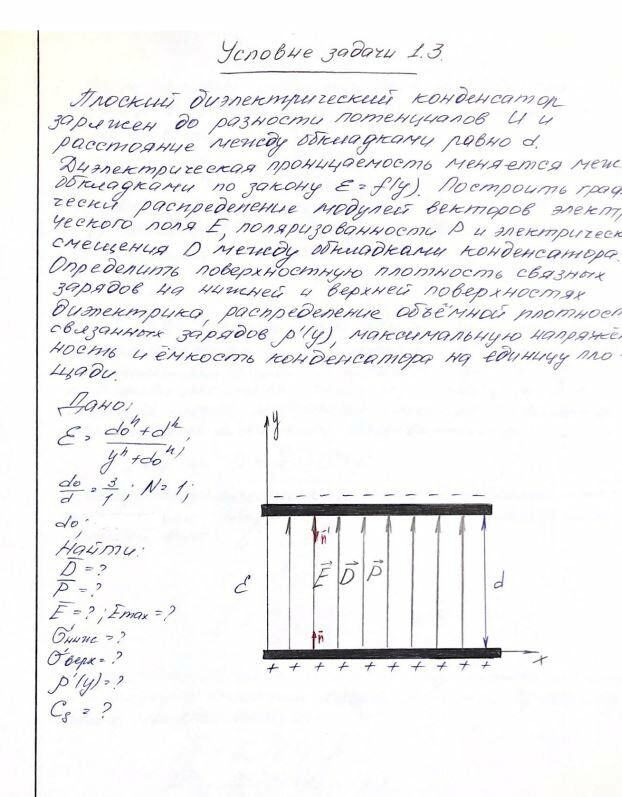 Условие задачи 1.3.
Плоский диэлектрический конденсатор
заряжен до разности потенциалов U и
расстояние между обкладками равно d.
Диэлектрическая проницаемость меняется меж
обкладками по закону ε = f(y). Построить граф
чески распределение модулей векторов электр
ческого поля E, поляризованности P и электрическ
смещения D между обкладками конденсатора.
Определить поверхностную плотность связных
зарядов на нижней и верхней поверхностях
диэлектрика, распределение объёмной плотнос
связанных зарядов ρ'(y), максимальную напряжён
ность и ёмкость конденсатора на единицу пло-
щади.
Дано:
ε = (do^n + d^n)/(y^n + do^n);
do/d = 3/1; N = 1;
do;
Найти:
D = ?
P = ?
E = ?; Emax = ?
σ'нижс = ?
σ'верх = ?
ρ'(y) = ?
Cs = ?
y
− − − − − − − − − − −
n'
E D P
ε
d
n
x
+ + + + + + + + + +